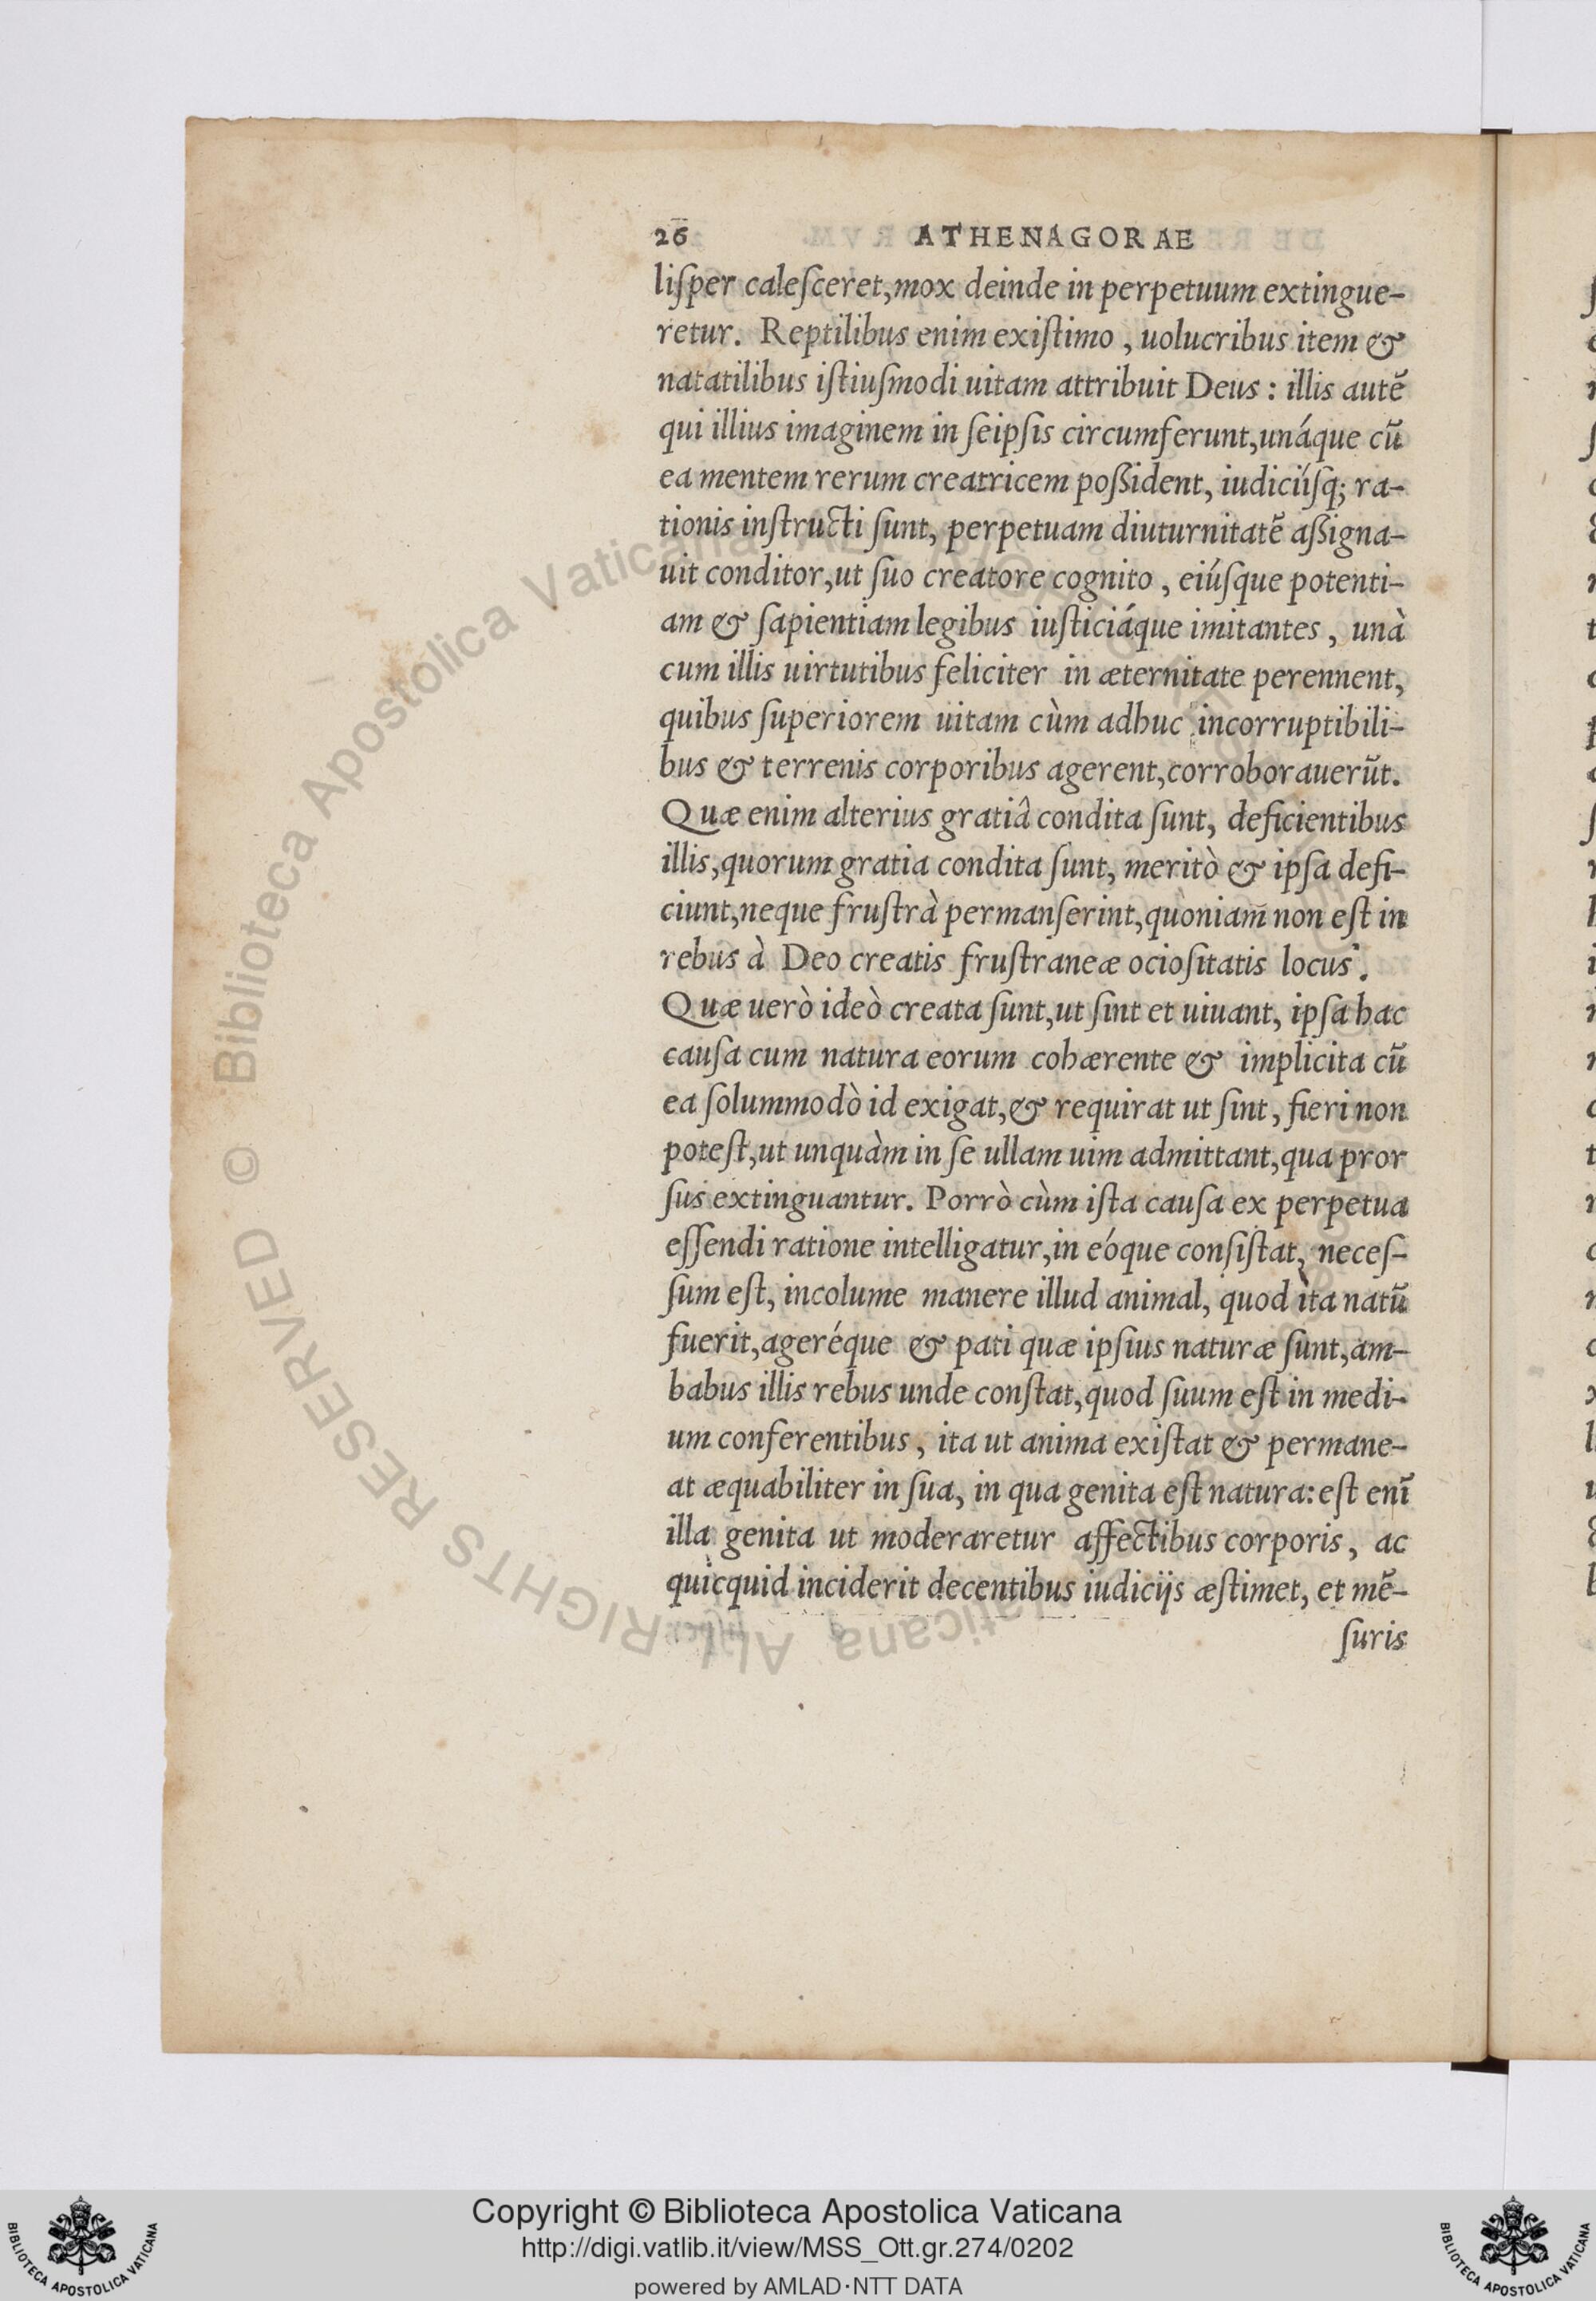 26 ATHENAGORAE
liſper caleſceret,mox deinde in perpetuum extingue-
retur. Reptilibus enim exiſtimo , uolucribus item &
natatilibus iſtiuſmodi uitam attribuit Deus : illis autē
qui illius imaginem in ſeipſis circumferunt,unáque cū
ea mentem rerum creatricem poſſident, iudicíiſq; ra-
tionis inſtructi ſunt, perpetuam diuturnitatē aſſigna-
uit conditor,ut ſuo creatore cognito , eiúſque potenti-
am & ſapientiam legibus iuſticiáque imitantes , unà
cum illis uirtutibus feliciter in æternitate perennent,
quibus ſuperiorem uitam cùm adhuc incorruptibili-
bus & terrenis corporibus agerent,corroborauerūt.
Quæ enim alterius gratiâ condita ſunt, deficientibus
illis,quorum gratia condita ſunt, meritò & ipſa defi-
ciunt,neque fruſtrà permanſerint,quoniam̄ non eſt in
rebus à Deo creatis fruſtraneæ ocioſitatis locus .
Quæ uerò ideò creata ſunt,ut ſint et uiuant, ipſa hac
cauſa cum natura eorum cohærente & implicita cū
ea ſolummodò id exigat,& requirat ut ſint , fieri non
poteſt,ut unquàm in ſe ullam uim admittant,qua pror
ſus extinguantur. Porrò cùm iſta cauſa ex perpetua
eſſendi ratione intelligatur,in eóque conſiſtat, neceſ-
ſum eſt, incolume manere illud animal, quod ita natū
fuerit,ageréque & pati quæ ipſius naturæ ſunt,am-
babus illis rebus unde conſtat,quod ſuum eſt in medi-
um conferentibus , ita ut anima exiſtat & permane-
at æquabiliter in ſua, in qua genita eſt natura: eſt enī
illa genita ut moderaretur affectibus corporis , ac
quicquid inciderit decentibus iudicijs æſtimet, et mē-
ſuris
© Biblioteca Apostolica Vaticana
ALL RIGHTS RESERVED
Copyright © Biblioteca Apostolica Vaticana
http://digi.vatlib.it/view/MSS_Ott.gr.274/0202
powered by AMLAD·NTT DATA
BIBLIOTECA APOSTOLICA VATICANA
BIBLIOTECA APOSTOLICA VATICANA